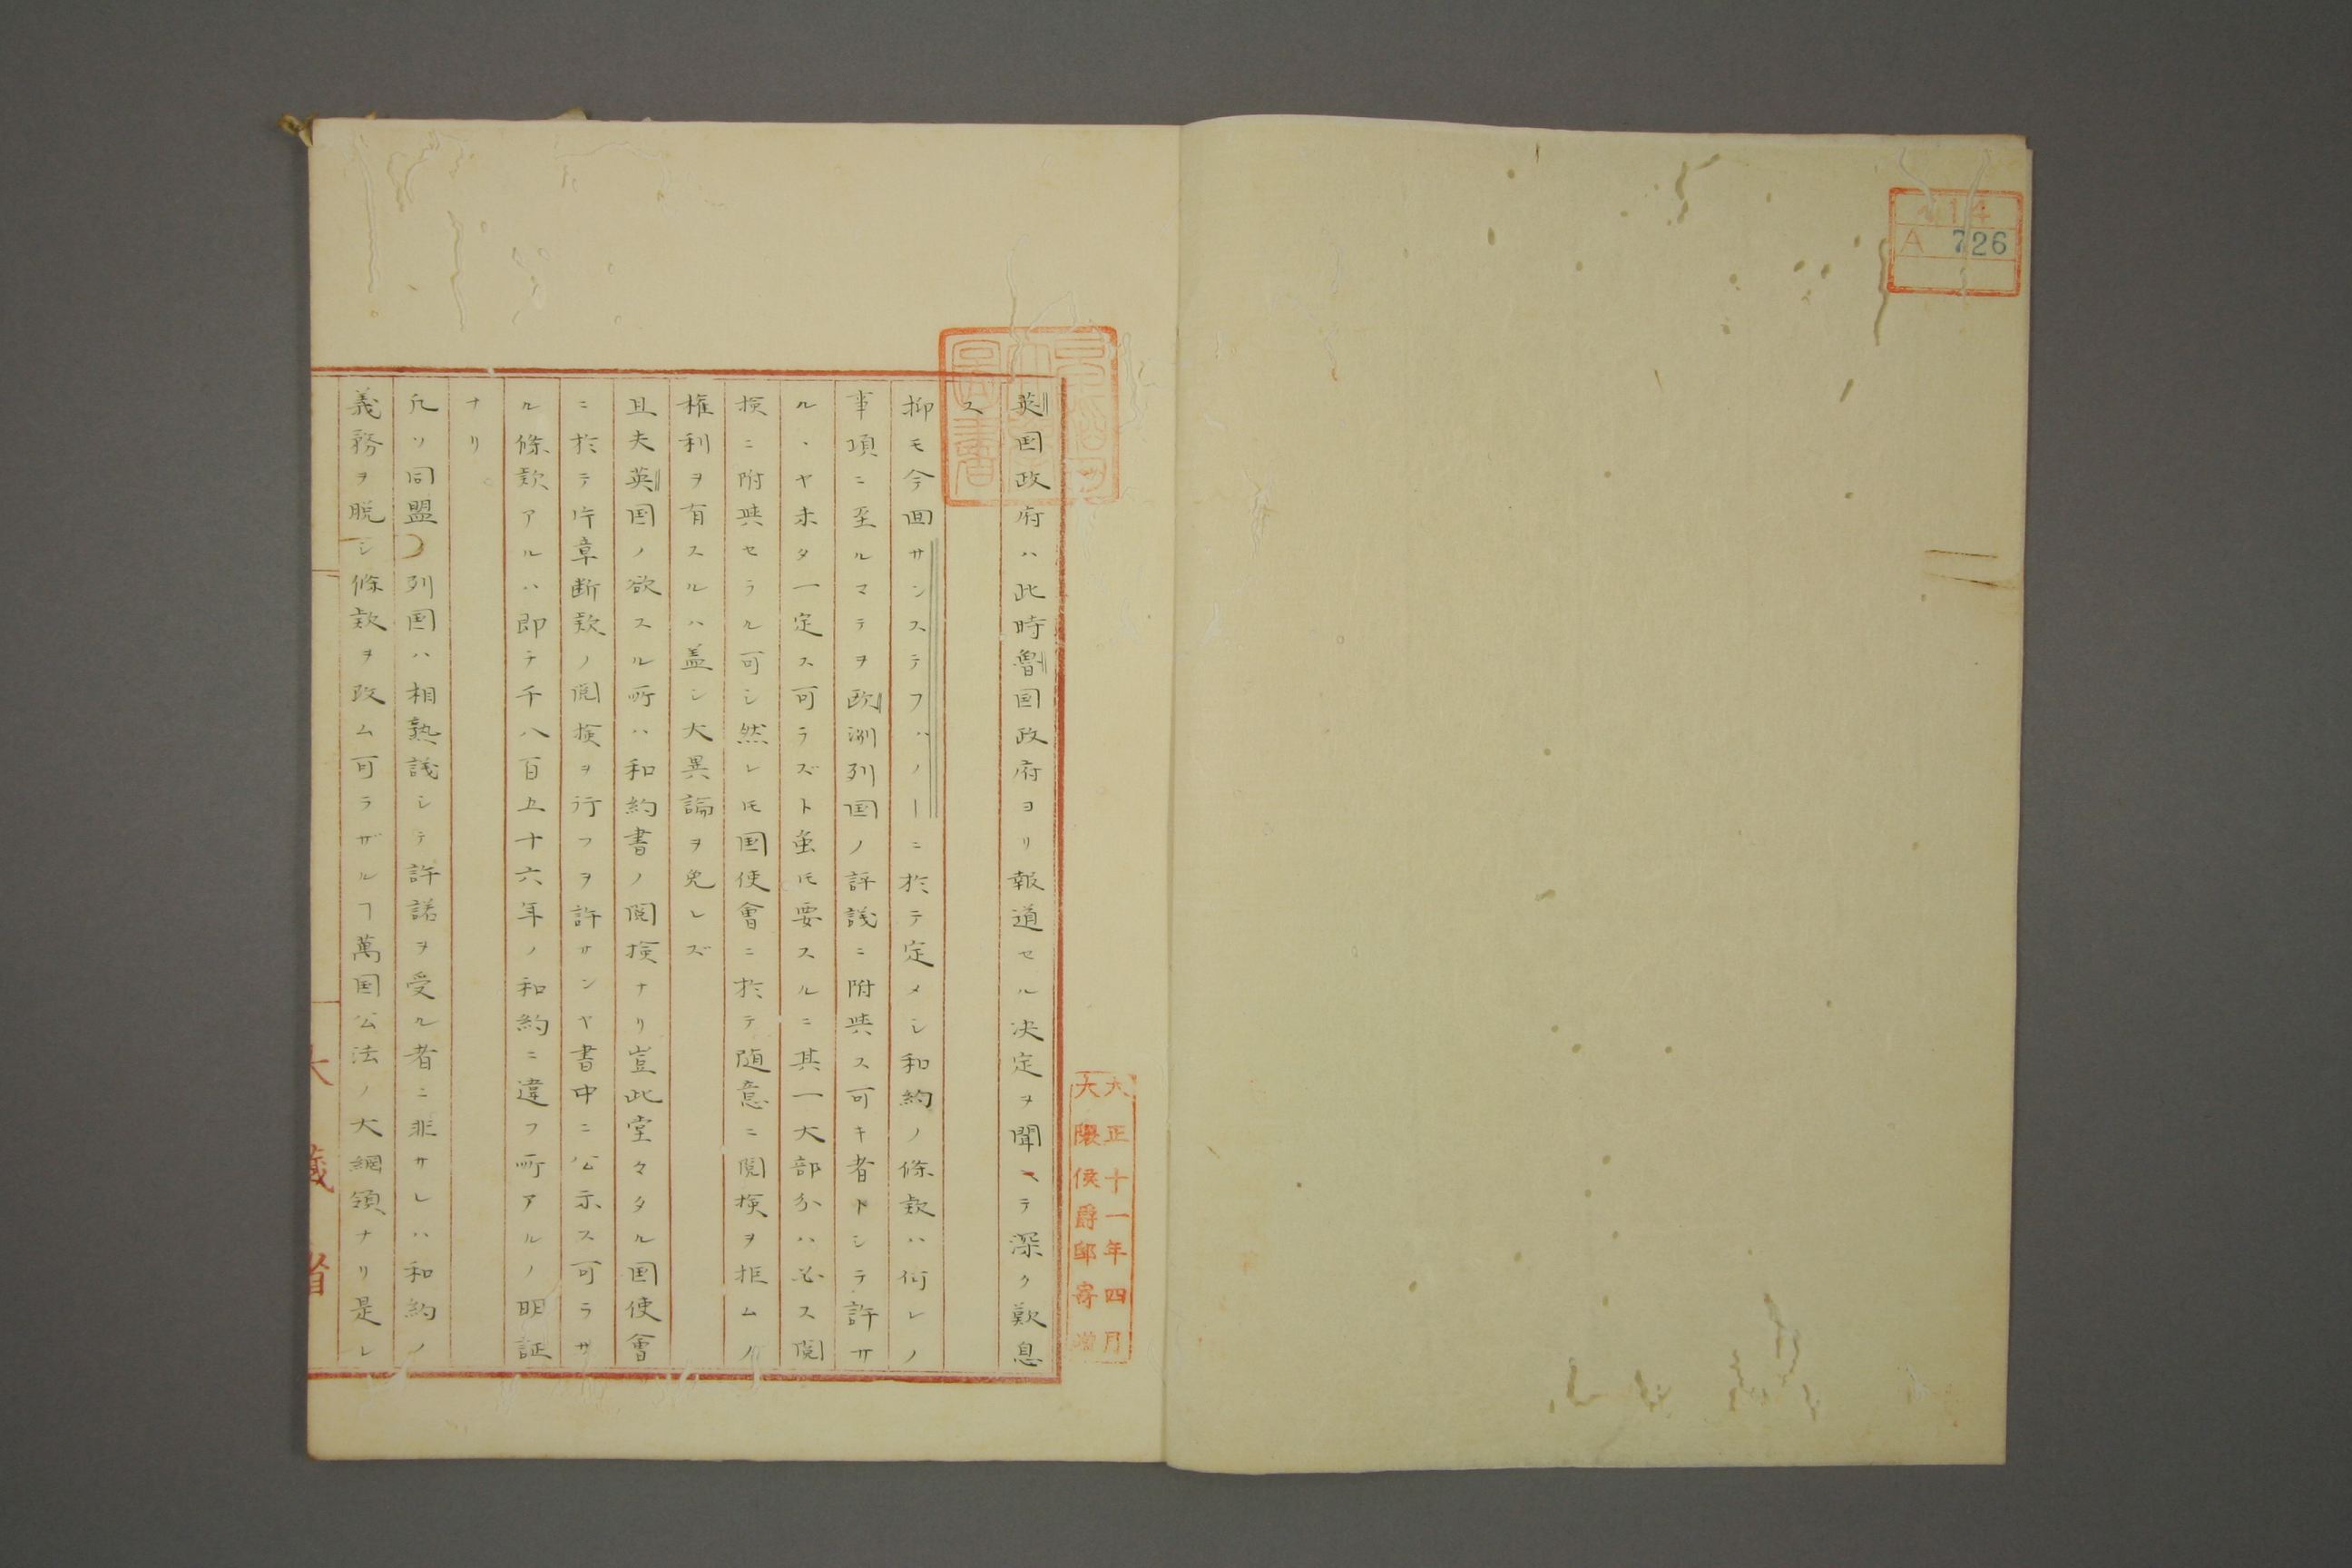 14
A 726
大正十一年四月
大隈侯爵邸寄贈
英国政府ハ此時魯国政府ヨリ報道セル决定ヲ聞ヘテ深ク歎息
ス
抑モ今回サンステフハノーニ於テ定メシ和約ノ條款ハ何レノ
事項ニ至ルマテヲ欧洲列国ノ評議ニ附與ス可キ者トシテ許サ
ルヽヤ未タ一定ス可ラズト虽𪜈要スルニ其一大部分ハ必ス閲
検ニ附與セラル可シ然レ𪜈国使會ニ於テ随意ニ閲検ヲ拒ムノ
権利ヲ有スルハ盖シ大異論ヲ免レズ
且夫英国ノ欲スル所ハ和約書ノ閲検ナリ豈此堂々タル国使會
ニ於テ片章断款ノ閲検ヲ行フヲ許サンヤ書中ニ公示ス可ラサ
ル條款アルハ即チ千八百五十六年ノ和約ニ違フ所アルノ明証
ナリ
凡ソ同盟列国ハ相熟議シテ許諾ヲ受ル者ニ非サレハ和約ノ
義務ヲ脱シ條款ヲ改ム可ラザルヿ萬国公法ノ大綱領ナリ是レ
大藏省